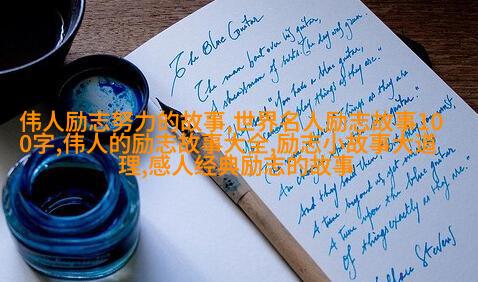 The Blue Guitar
The man bent over his guitar,
A shearsman of sorts. The day was green.
"You have a blue guitar,
things as they are."
things as they are
伟人励志努力的故事,世界名人励志故事10
0字,伟人的励志故事大全,励志小故事大道
理,感人经典励志的故事
And they said then
A tune beyond us, yet
A tune upon the blue guitar
Of things exactly as they are."
Wallace Stevens